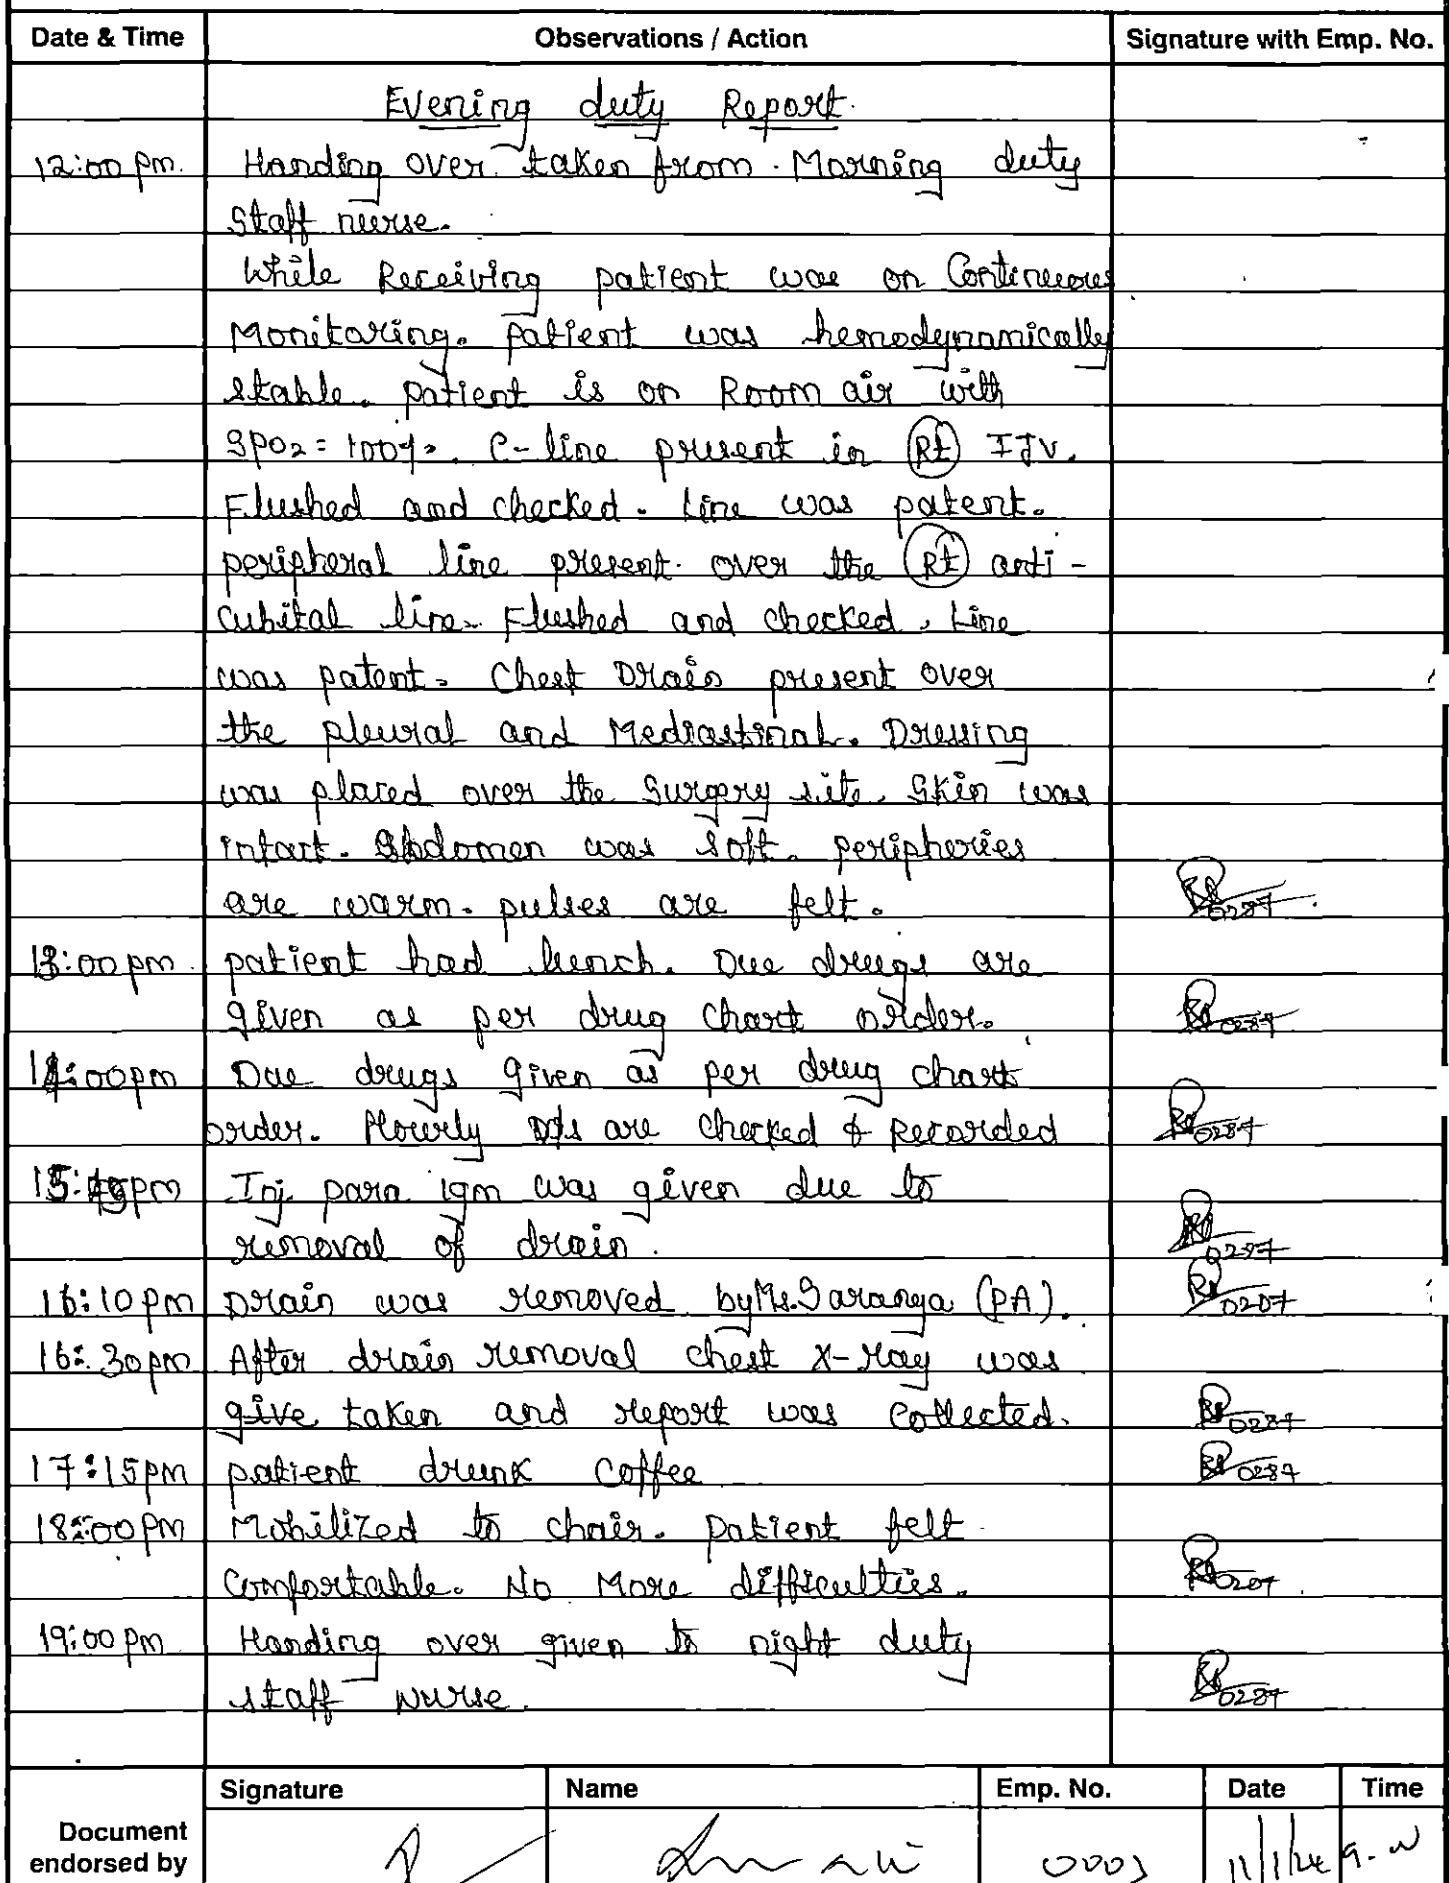 Date & Time Observations / Action Signature with Emp. No.
Evening duty Report.
12:00 pm. Handing over taken from Morning duty
staff nurse.
While Receiving patient was on Continuous
Monitoring. patient was hemodynamically
stable. patient is on Room air with
SPO2 = 100%. C-line present in Rt IJV.
Flushed and checked. Line was patent.
peripheral line present over the Rt anti-
cubital line. Flushed and checked. Line
was patent. Chest Drain present over
the pleural and Mediastinal. Dressing
was placed over the Surgery site. Skin was
intact. Abdomen was soft. peripheries
are warm. pulses are felt. 0287
13:00 pm patient had lunch. Due drugs are
given as per drug chart order. 0287
14:00 pm Due drugs given as per drug chart
order. Hourly are checked & Recorded 0287
pm Inj. para 1gm was given due to
removal of drain. 0287
16:10 pm Drain was removed by Ms. Saranya (PA). 0287
16:30 pm After drain removal chest X-ray was
give taken and report was collected. 0287
17:15 pm patient drunk coffee 0287
18:00 pm Mobilized to chair. Patient felt
comfortable. No More difficulties. 0287
19:00 pm Handing over given to night duty
staff Nurse. 0287
Signature Name Emp. No. Date Time
Document
endorsed by 11/1/24